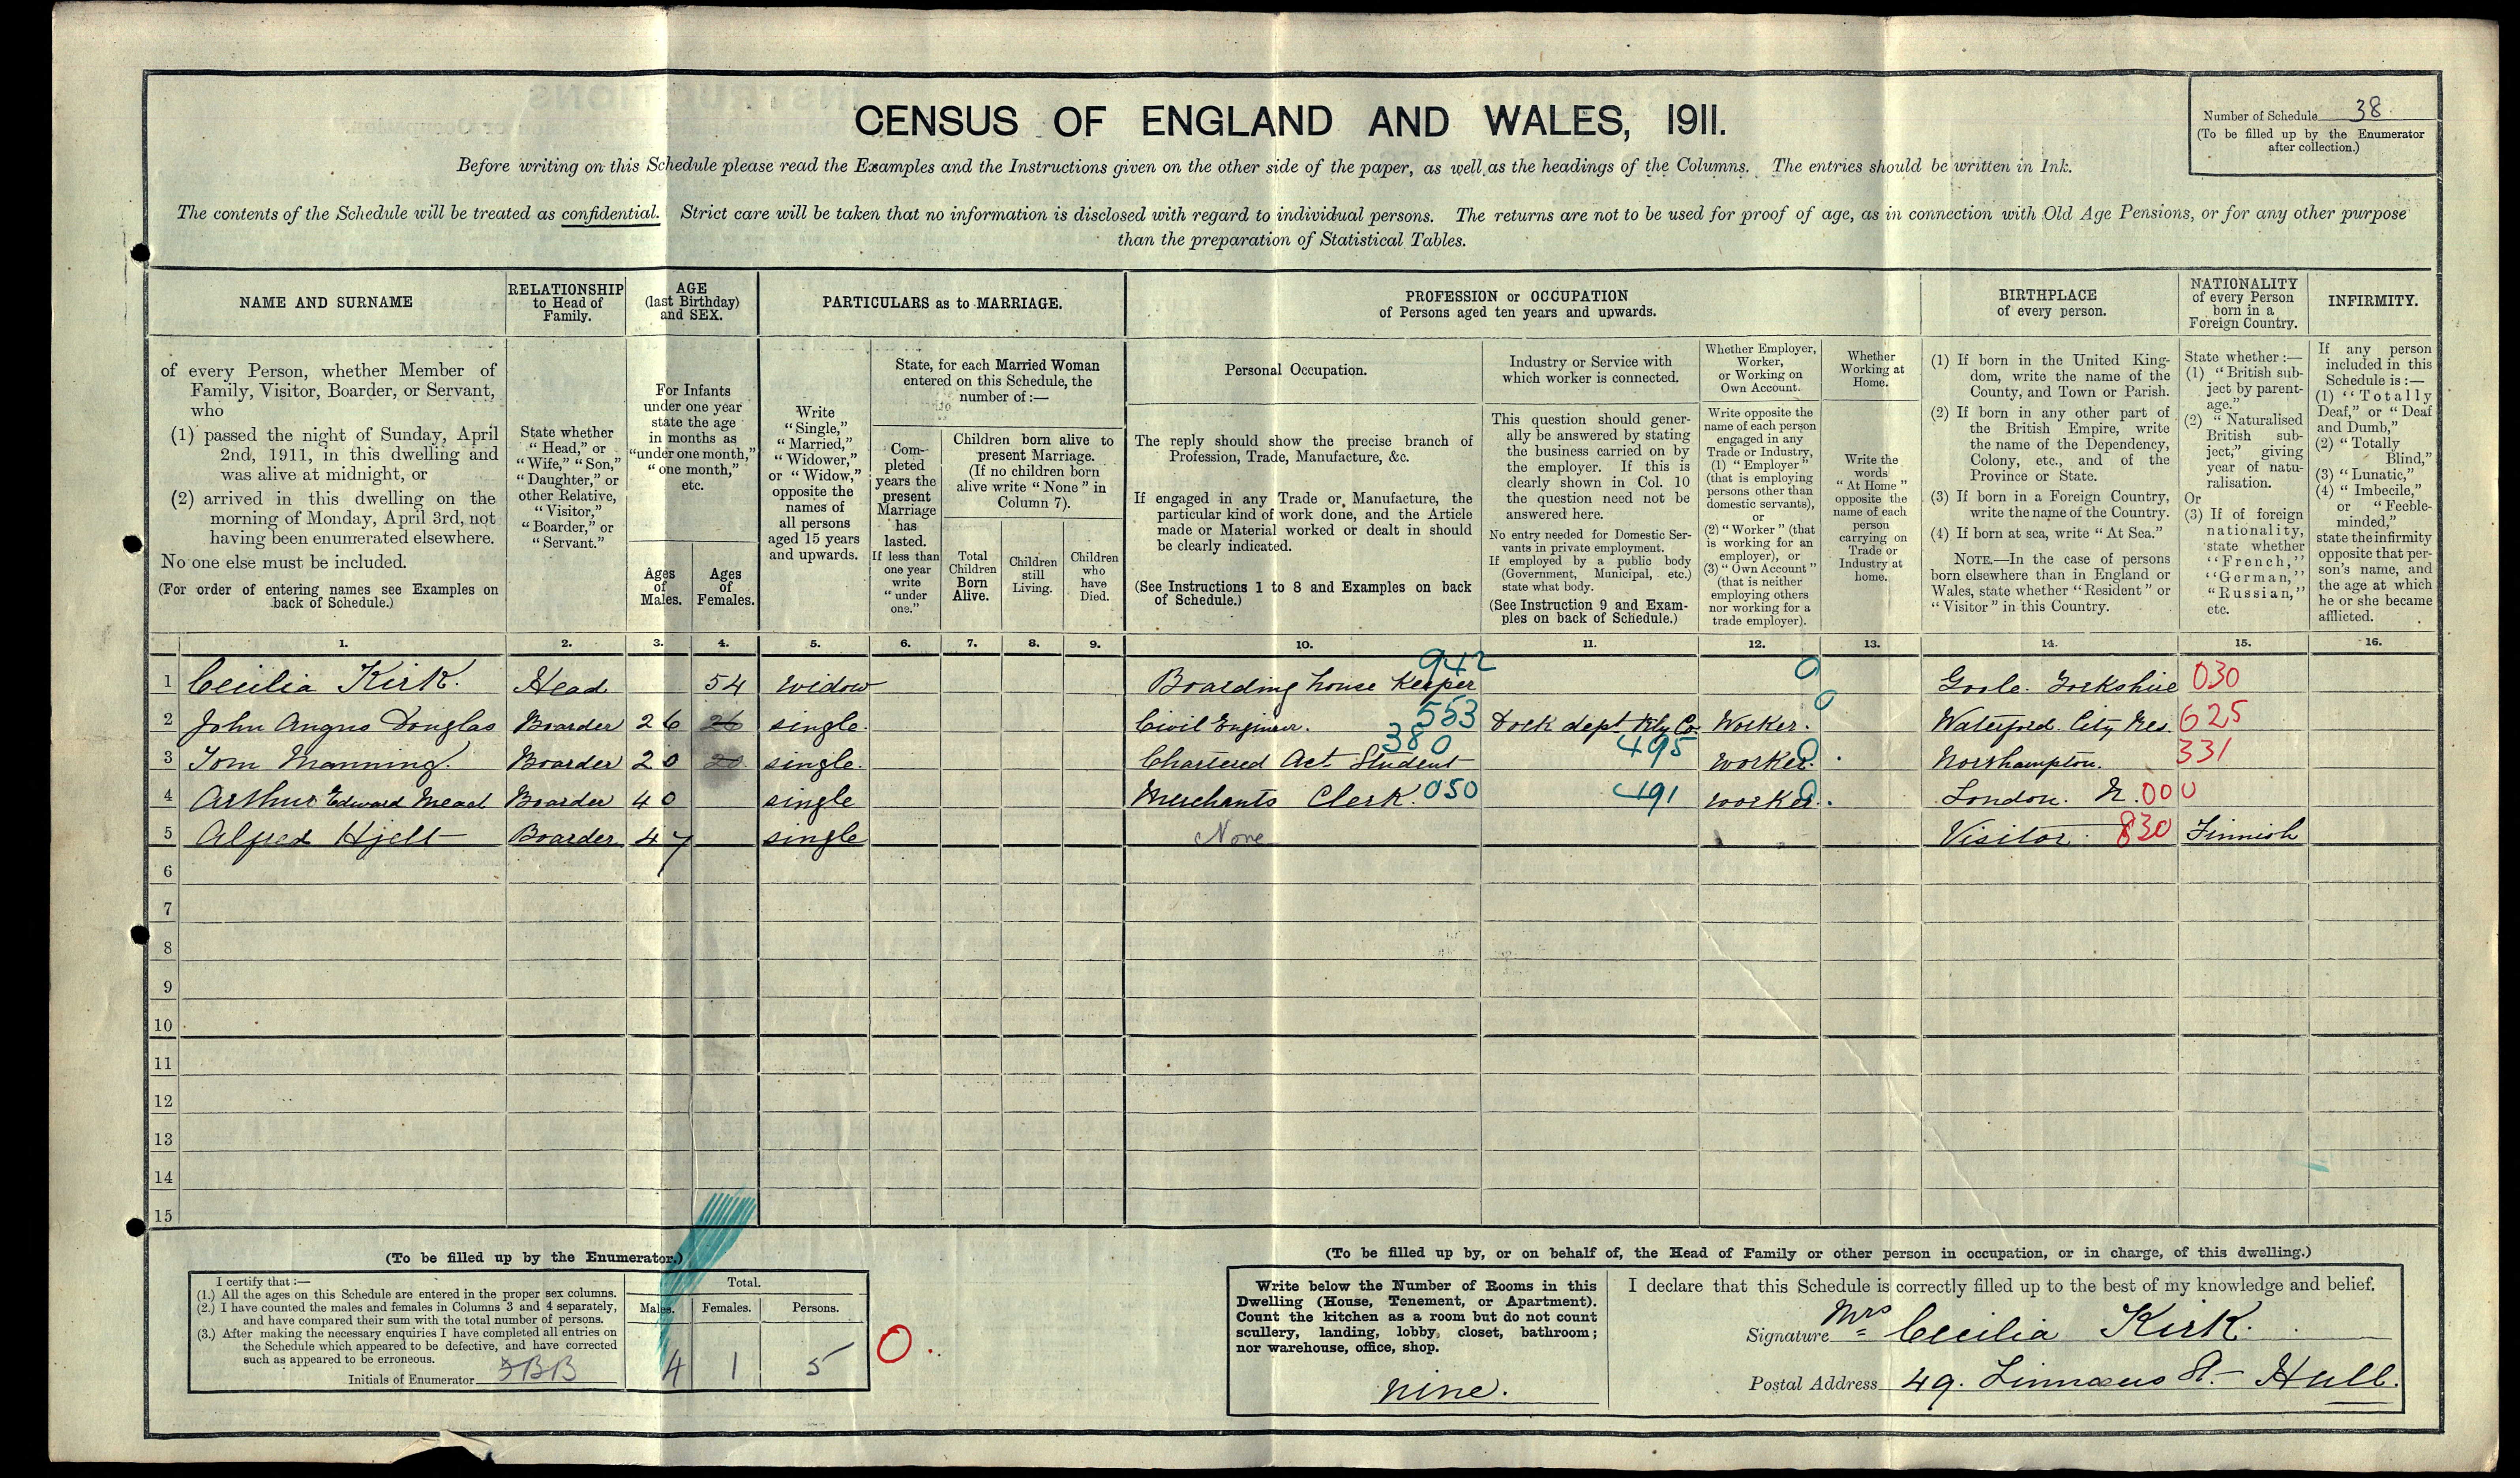 CENSUS OF ENGLAND AND WALES, 1911.
Number of Schedule 38
(To be filled up by the Enumerator
after collection.)
Before writing on this Schedule please read the Examples and the Instructions given on the other side of the paper, as well as the headings of the Columns. The entries should be written in Ink.
The contents of the Schedule will be treated as confidential. Strict care will be taken that no information is disclosed with regard to individual persons. The returns are not to be used for proof of age, as in connection with Old Age Pensions, or for any other purpose
than the preparation of Statistical Tables.
NAME AND SURNAME
of every Person, whether Member of
Family, Visitor, Boarder, or Servant,
who
(1) passed the night of Sunday, April
2nd, 1911, in this dwelling and
was alive at midnight, or
(2) arrived in this dwelling on the
morning of Monday, April 3rd, not
having been enumerated elsewhere.
No one else must be included.
(For order of entering names see Examples on
back of Schedule.)
RELATIONSHIP
to Head of
Family.
State whether
"Head," or
"Wife," "Son,"
"Daughter," or
other Relative,
"Visitor,"
"Boarder," or
"Servant."
AGE
(last Birthday)
and SEX.
For Infants
under one year
state the age
in months as
"under one month,"
"one month,"
etc.
Ages
of
Males.
Ages
of
Females.
PARTICULARS as to MARRIAGE.
Write
"Single,"
"Married,"
"Widower,"
or "Widow,"
opposite the
names of
all persons
aged 15 years
and upwards.
State, for each Married Woman
entered on this Schedule, the
number of :—
Com-
pleted
years the
present
Marriage
has
lasted.
If less than
one year
write
"under
one."
Children born alive to
present Marriage.
(If no children born
alive write "None" in
Column 7).
Total
Children
Born
Alive.
Children
still
Living.
Children
who
have
Died.
PROFESSION or OCCUPATION
of Persons aged ten years and upwards.
Personal Occupation.
The reply should show the precise branch of
Profession, Trade, Manufacture, &c.
If engaged in any Trade or Manufacture, the
particular kind of work done, and the Article
made or Material worked or dealt in should
be clearly indicated.
(See Instructions 1 to 8 and Examples on back
of Schedule.)
Industry or Service with
which worker is connected.
This question should gener-
ally be answered by stating
the business carried on by
the employer. If this is
clearly shown in Col. 10
the question need not be
answered here.
No entry needed for Domestic Ser-
vants in private employment.
If employed by a public body
(Government, Municipal, etc.)
state what body.
(See Instruction 9 and Exam-
ples on back of Schedule.)
Whether Employer,
Worker,
or Working on
Own Account.
Write opposite the
name of each person
engaged in any
Trade or Industry,
(1) "Employer"
(that is employing
persons other than
domestic servants),
or
(2) "Worker" (that
is working for an
employer), or
(3) "Own Account"
(that is neither
employing others
nor working for a
trade employer).
Whether
Working at
Home.
Write the
words
"At Home"
opposite the
name of each
person
carrying on
Trade or
Industry at
home.
BIRTHPLACE
of every person.
(1) If born in the United King-
dom, write the name of the
County, and Town or Parish.
(2) If born in any other part of
the British Empire, write
the name of the Dependency,
Colony, etc., and of the
Province or State.
(3) If born in a Foreign Country,
write the name of the Country.
(4) If born at sea, write "At Sea."
NOTE.—In the case of persons
born elsewhere than in England or
Wales, state whether "Resident" or
"Visitor" in this Country.
NATIONALITY
of every Person
born in a
Foreign Country.
State whether :—
(1) "British sub-
ject by parent-
age."
(2) "Naturalised
British sub-
ject," giving
year of natu-
ralisation.
Or
(3) If of foreign
nationality,
state whether
"French,"
"German,"
"Russian,"
etc.
INFIRMITY.
If any person
included in this
Schedule is :—
(1) "Totally
Deaf," or "Deaf
and Dumb,"
(2) "Totally
Blind,"
(3) "Lunatic,"
(4) "Imbecile,"
or "Feeble-
minded,"
state the infirmity
opposite that per-
son's name, and
the age at which
he or she became
afflicted.
1. 2. 3. 4. 5. 6. 7. 8. 9. 10. 11. 12. 13. 14. 15. 16.
1 Cecilia Kirk. Head 54 widow Boarding house Keeper 942 0 Goole. Yorkshire 030
2 John Angus Douglas Boarder 26 26 single. Civil Engineer. 553 Dock dept Rly Co. Worker. 0 Waterford City Res. 625
3 Tom Manning. Boarder 20 20 single. Chartered Act Student 380 495 worker. 0 Northampton. 331
4 Arthur Edward Mead Boarder 40 single Merchants Clerk. 050 491 worker. 0 London. N. 000
5 Alfred Hjelt Boarder 47 single None Visitor. 830 Finnish
6
7
8
9
10
11
12
13
14
15
(To be filled up by the Enumerator.)
I certify that :—
(1.) All the ages on this Schedule are entered in the proper sex columns.
(2.) I have counted the males and females in Columns 3 and 4 separately,
and have compared their sum with the total number of persons.
(3.) After making the necessary enquiries I have completed all entries on
the Schedule which appeared to be defective, and have corrected
such as appeared to be erroneous.
Initials of Enumerator
Total.
Males. Females. Persons.
4 1 5
0.
(To be filled up by, or on behalf of, the Head of Family or other person in occupation, or in charge, of this dwelling.)
Write below the Number of Rooms in this
Dwelling (House, Tenement, or Apartment).
Count the kitchen as a room but do not count
scullery, landing, lobby, closet, bathroom;
nor warehouse, office, shop.
nine.
I declare that this Schedule is correctly filled up to the best of my knowledge and belief.
Signature Mrs Cecilia Kirk.
Postal Address 49. Linnaeus St. Hull.